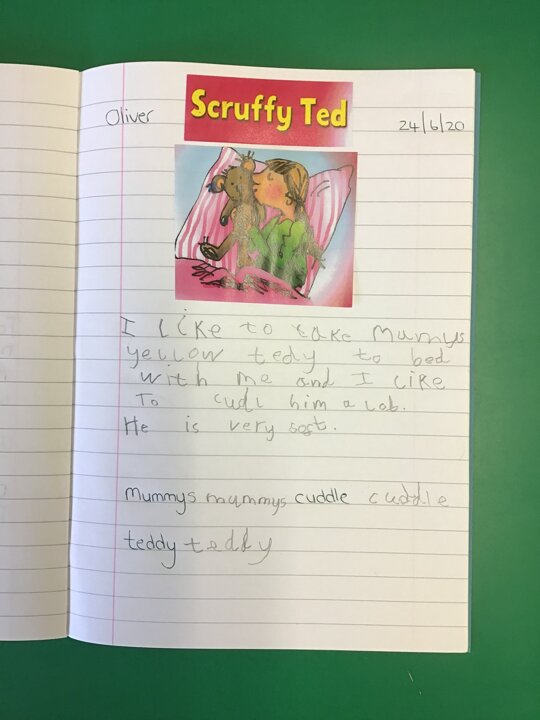 Oliver
Scruffy Ted
24/6/20
I like to take mumys
yellow tedy to bed
with me and I like
To cudl him a lot.
He is very soft.
mummys mummys cuddle cuddle
teddy teddy